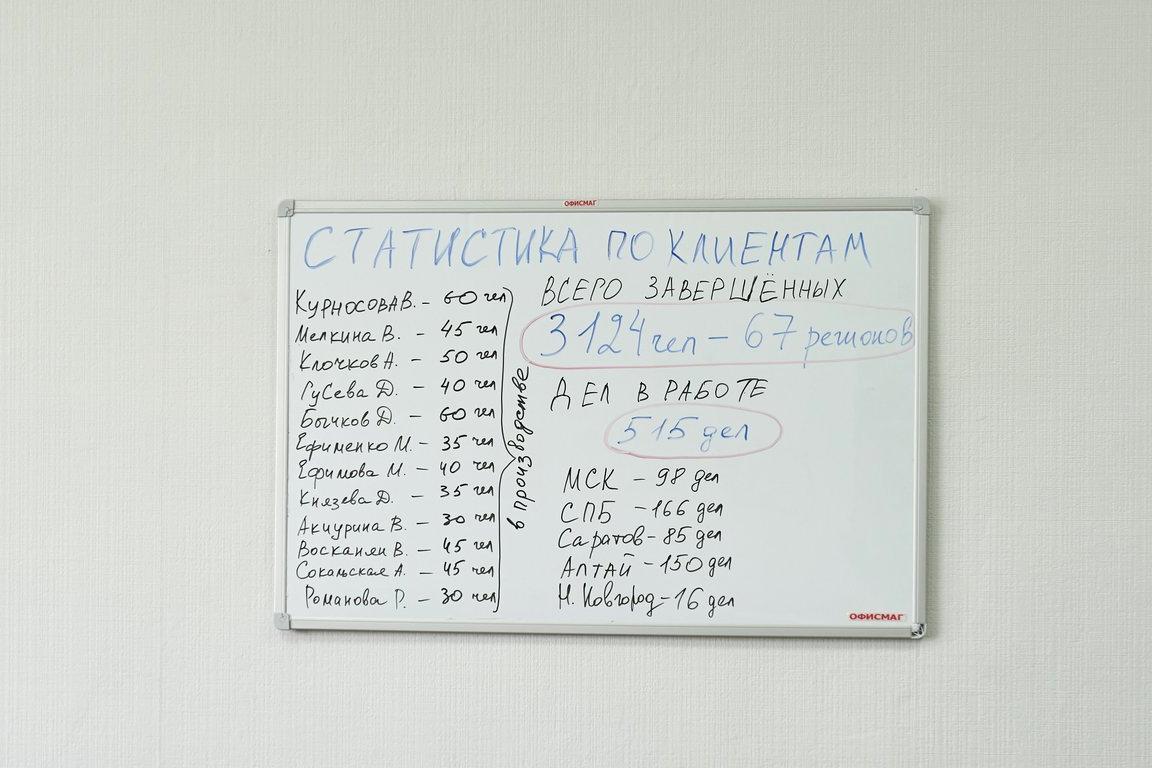 ОФИСМАГ
СТАТИСТИКА ПО КЛИЕНТАМ
Курносова В. – 60 чел
Мелкина В. – 45 чел
Клочков А. – 50 чел
Гусева Д. – 40 чел
Бычков Д. – 60 чел
Ефименко М. – 35 чел
Ефимова М. – 40 чел
Князева Д. – 35 чел
Акчурина В. – 30 чел
Восканян В. – 45 чел
Сокальская А. – 45 чел
Романова Р. – 30 чел
в производстве
ВСЕГО ЗАВЕРШЁННЫХ
3124 чел – 67 регионов
ДЕЛ В РАБОТЕ
515 дел
МСК – 98 дел
СПБ – 166 дел
Саратов – 85 дел
Алтай – 150 дел
Н. Новгород – 16 дел
ОФИСМАГ